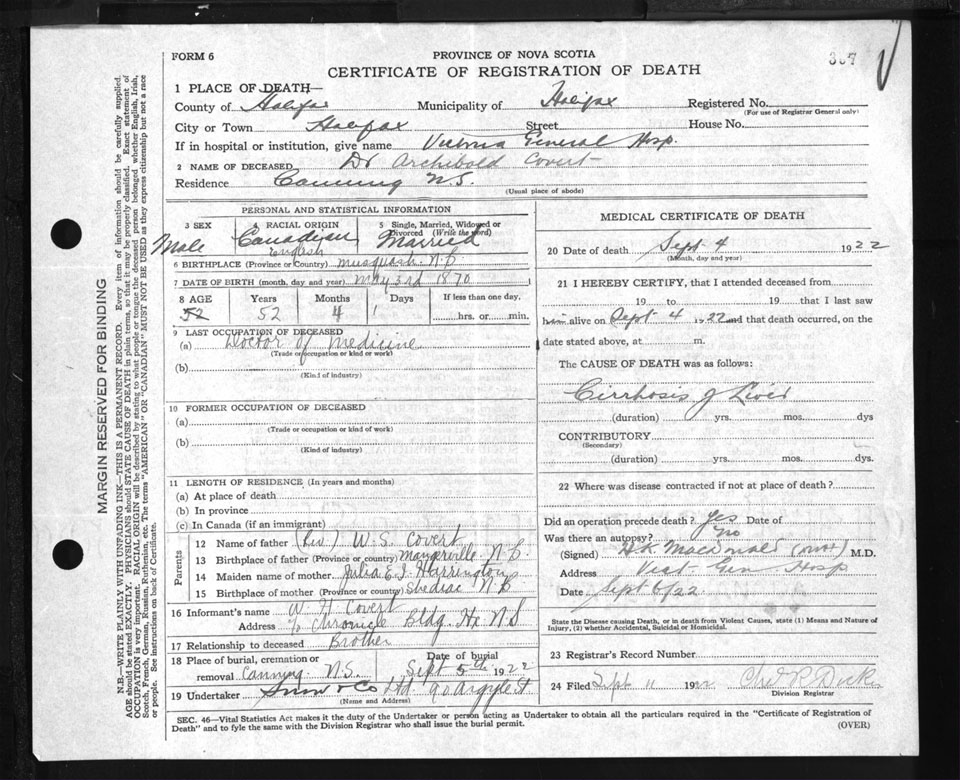 FORM 6
PROVINCE OF NOVA SCOTIA
CERTIFICATE OF REGISTRATION OF DEATH
367
1 PLACE OF DEATH—
County of Halifax Municipality of Halifax Registered No.
(For use of Registrar General only)
City or Town Halifax Street House No.
If in hospital or institution, give name Victoria General Hosp.
2 NAME OF DECEASED Dr Archibald Covert
Residence Canning N.S.
(Usual place of abode)
MARGIN RESERVED FOR BINDING
N.B.—WRITE PLAINLY WITH UNFADING INK—THIS IS A PERMANENT RECORD. Every item of information should be carefully supplied.
AGE should be stated EXACTLY. PHYSICIANS should STATE CAUSE OF DEATH in plain terms, so that it may be properly classified. Exact statement of
OCCUPATION is very important. RACIAL ORIGIN will be described by stating to what people or tongue the deceased person belonged whether English, Irish,
Scotch, French, German, Russian, Ruthenian, etc. The terms "AMERICAN" OR "CANADIAN" MUST NOT BE USED as they express citizenship but not a race
or people. See Instructions on back of Certificate.
PERSONAL AND STATISTICAL INFORMATION
3 SEX 4 RACIAL ORIGIN 5 Single, Married, Widowed or
Divorced (Write the word)
Male Canadian Married
English
6 BIRTHPLACE (Province or Country) Musquash N.B
7 DATE OF BIRTH (month, day, and year) May 3rd 1870
8 AGE Years Months Days If less than one day,
52 52 4 1 hrs. or min.
9 LAST OCCUPATION OF DECEASED
(a) Doctor of Medicine
(Trade or occupation or kind or work)
(b)
(Kind of industry)
10 FORMER OCCUPATION OF DECEASED
(a)
(Trade or occupation or kind of work)
(b)
(Kind of industry)
11 LENGTH OF RESIDENCE (In years and months)
(a) At place of death
(b) In province
(c) In Canada (if an immigrant)
Parents
12 Name of father W. S. Covert
13 Birthplace of father (Province or country) Maugerville N.B.
14 Maiden name of mother Julia E. J. Harrington
15 Birthplace of mother (Province or country) Shediac N B
16 Informant's name W. H Covert
Address c/o Chronicle Bldg. Hx N S
17 Relationship to deceased Brother
18 Place of burial, cremation or Date of burial
removal Canning N.S. Sept 5th 1922
19 Undertaker Snow & Co Ltd 90 Argyle St
(Name and Address)
MEDICAL CERTIFICATE OF DEATH
20 Date of death Sept 4 1922
(Month, day and year)
21 I HEREBY CERTIFY, that I attended deceased from
19 to 19 that I last saw
him alive on Sept 4 1922 and that death occurred, on the
date stated above, at m.
The CAUSE OF DEATH was as follows:
Cirrhosis of Liver
(duration) yrs. mos. dys
CONTRIBUTORY
(Secondary)
(duration) yrs. mos. dys.
22 Where was disease contracted if not at place of death?
Did an operation precede death? Yes Date of
Was there an autopsy? No
(Signed) H.K. MacDonald M.D.
Address Vict. Gen Hosp
Date Sept 6/22
State the Disease causing Death, or in death from Violent Causes, state (1) Means and Nature of
Injury, (2) whether Accidental, Suicidal or Homicidal.
23 Registrar's Record Number
24 Filed Sept 11 1922 Chas R Dick
Division Registrar
SEC. 46—Vital Statistics Act makes it the duty of the Undertaker or person acting as Undertaker to obtain all the particulars required in the "Certificate of Registration of
Death" and to fyle the same with the Division Registrar who shall issue the burial permit.
(OVER)